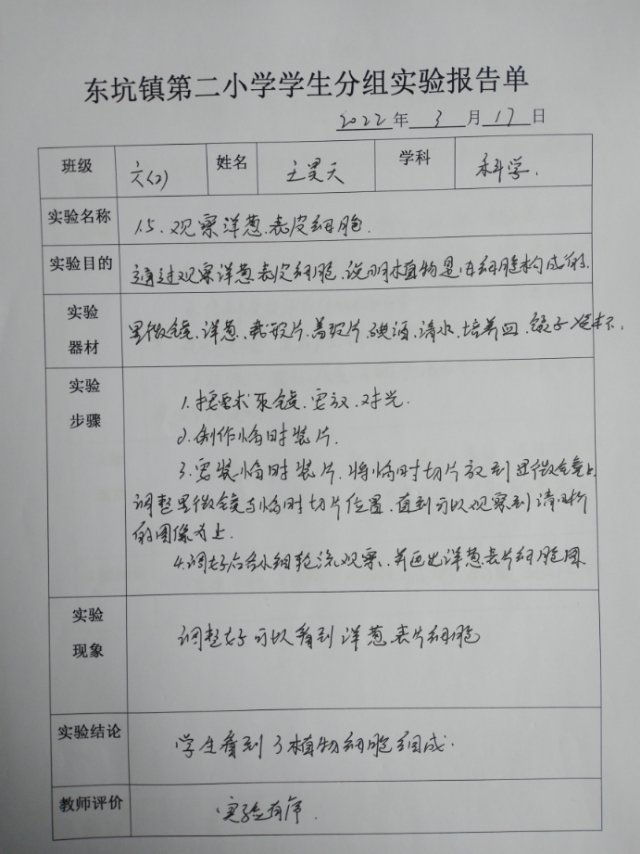 东坑镇第二小学学生分组实验报告单
2022年 3 月 17 日
班级 六(2) 姓名 王昊天 学科 科学.
实验名称 15.观察洋葱表皮细胞.
实验目的 通过观察洋葱表皮细胞,说明植物是由细胞构成的.
实验
器材
显微镜、洋葱、载玻片、盖玻片、碘酒、清水、培养皿、镊子
实验
步骤
1.按要求取镜、安放、对光.
2.制作临时装片.
3.安装临时装片.将临时切片放到显微镜上
调整显微镜与临时切片位置,直到可以观察到清晰
的图像为上.
4.调好后各小组轮流观察、并画出洋葱表片细胞图
实验
现象
调整好可以看到洋葱表片细胞
实验结论 学生看到了植物细胞组成.
教师评价 实验有序.